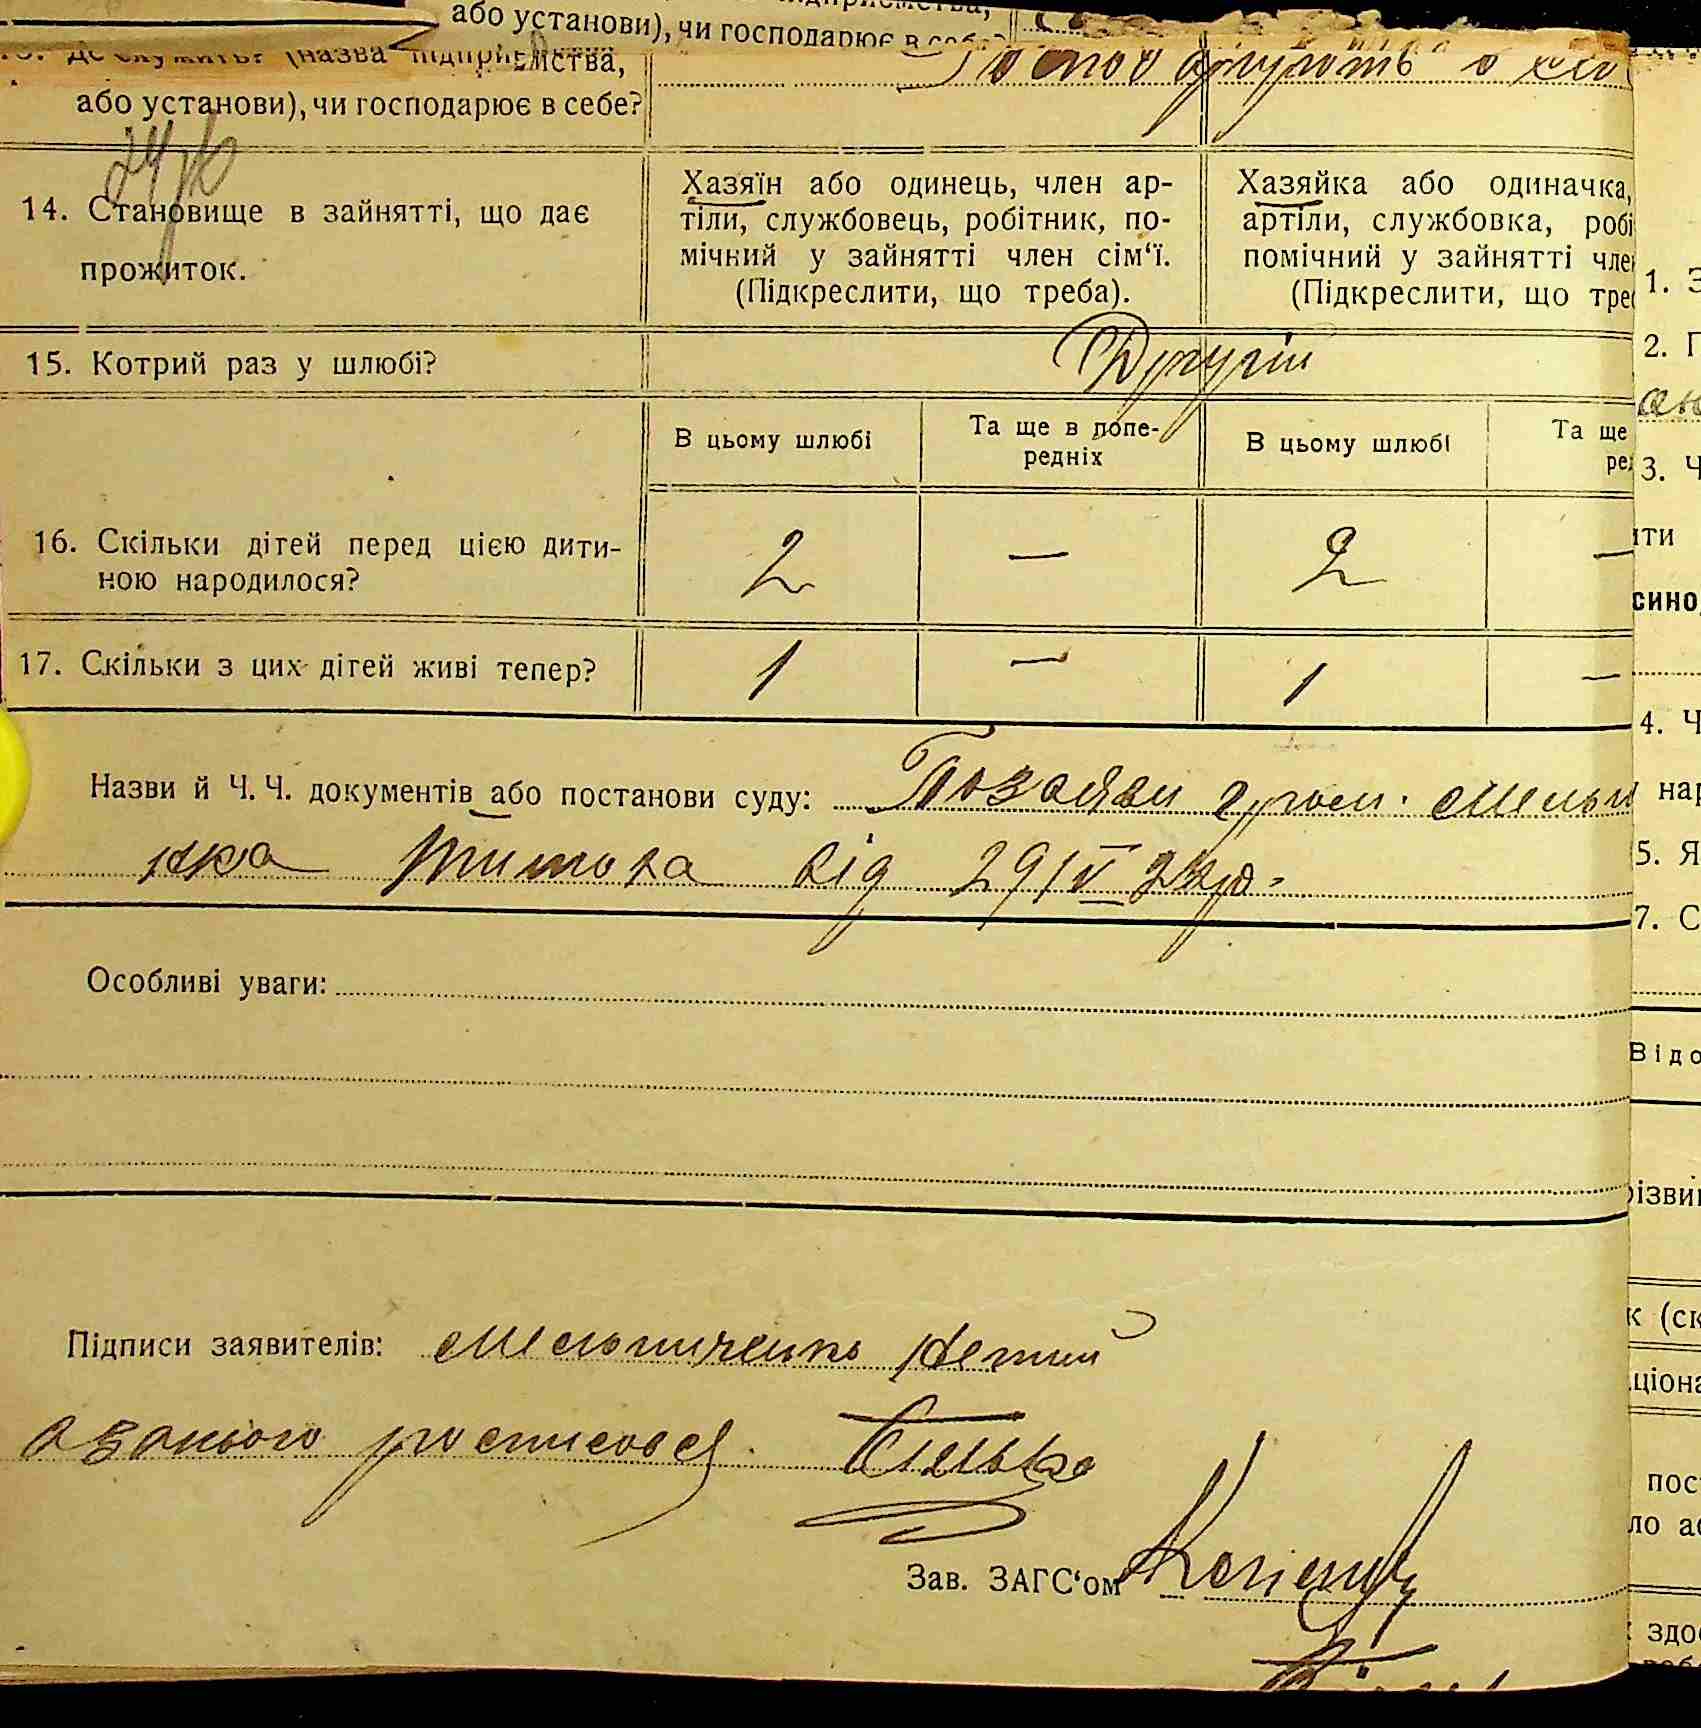 або установи), чи господарює в себе?
або установи), чи господарює в себе?
14. Становище в зайнятті, що дає
прожиток.
Хазяїн або одинець, член ар-
тіли, службовець, робітник, по-
мічний у зайнятті член сім‘ї.
(Підкреслити, що треба).
Хазяйка або одиначка,
артіли, службовка, робі
помічний у зайнятті чле
(Підкреслити, що тре
15. Котрий раз у шлюбі?
Другий
В цьому шлюбі
Та ще в попе-
редніх
В цьому шлюбі
Та ще
ре
16. Скільки дітей перед цією дити-
ною народилося?
2 — 2 —
17. Скільки з цих дітей живі тепер?
1 — 1 —
Назви й Ч. Ч. документів або постанови суду: По заяви гром. Мельни
від 29/IV
Особливі уваги:
Підписи заявителів: Мельниченко
а за нього росписовся.
Зав. ЗАГС‘ом
1. З
2. Г
3. Ч
ити
сино
4. Ч
нар
5. Я
7. С
Відо
різви
к (ск
ціона
пос
ло а
здо